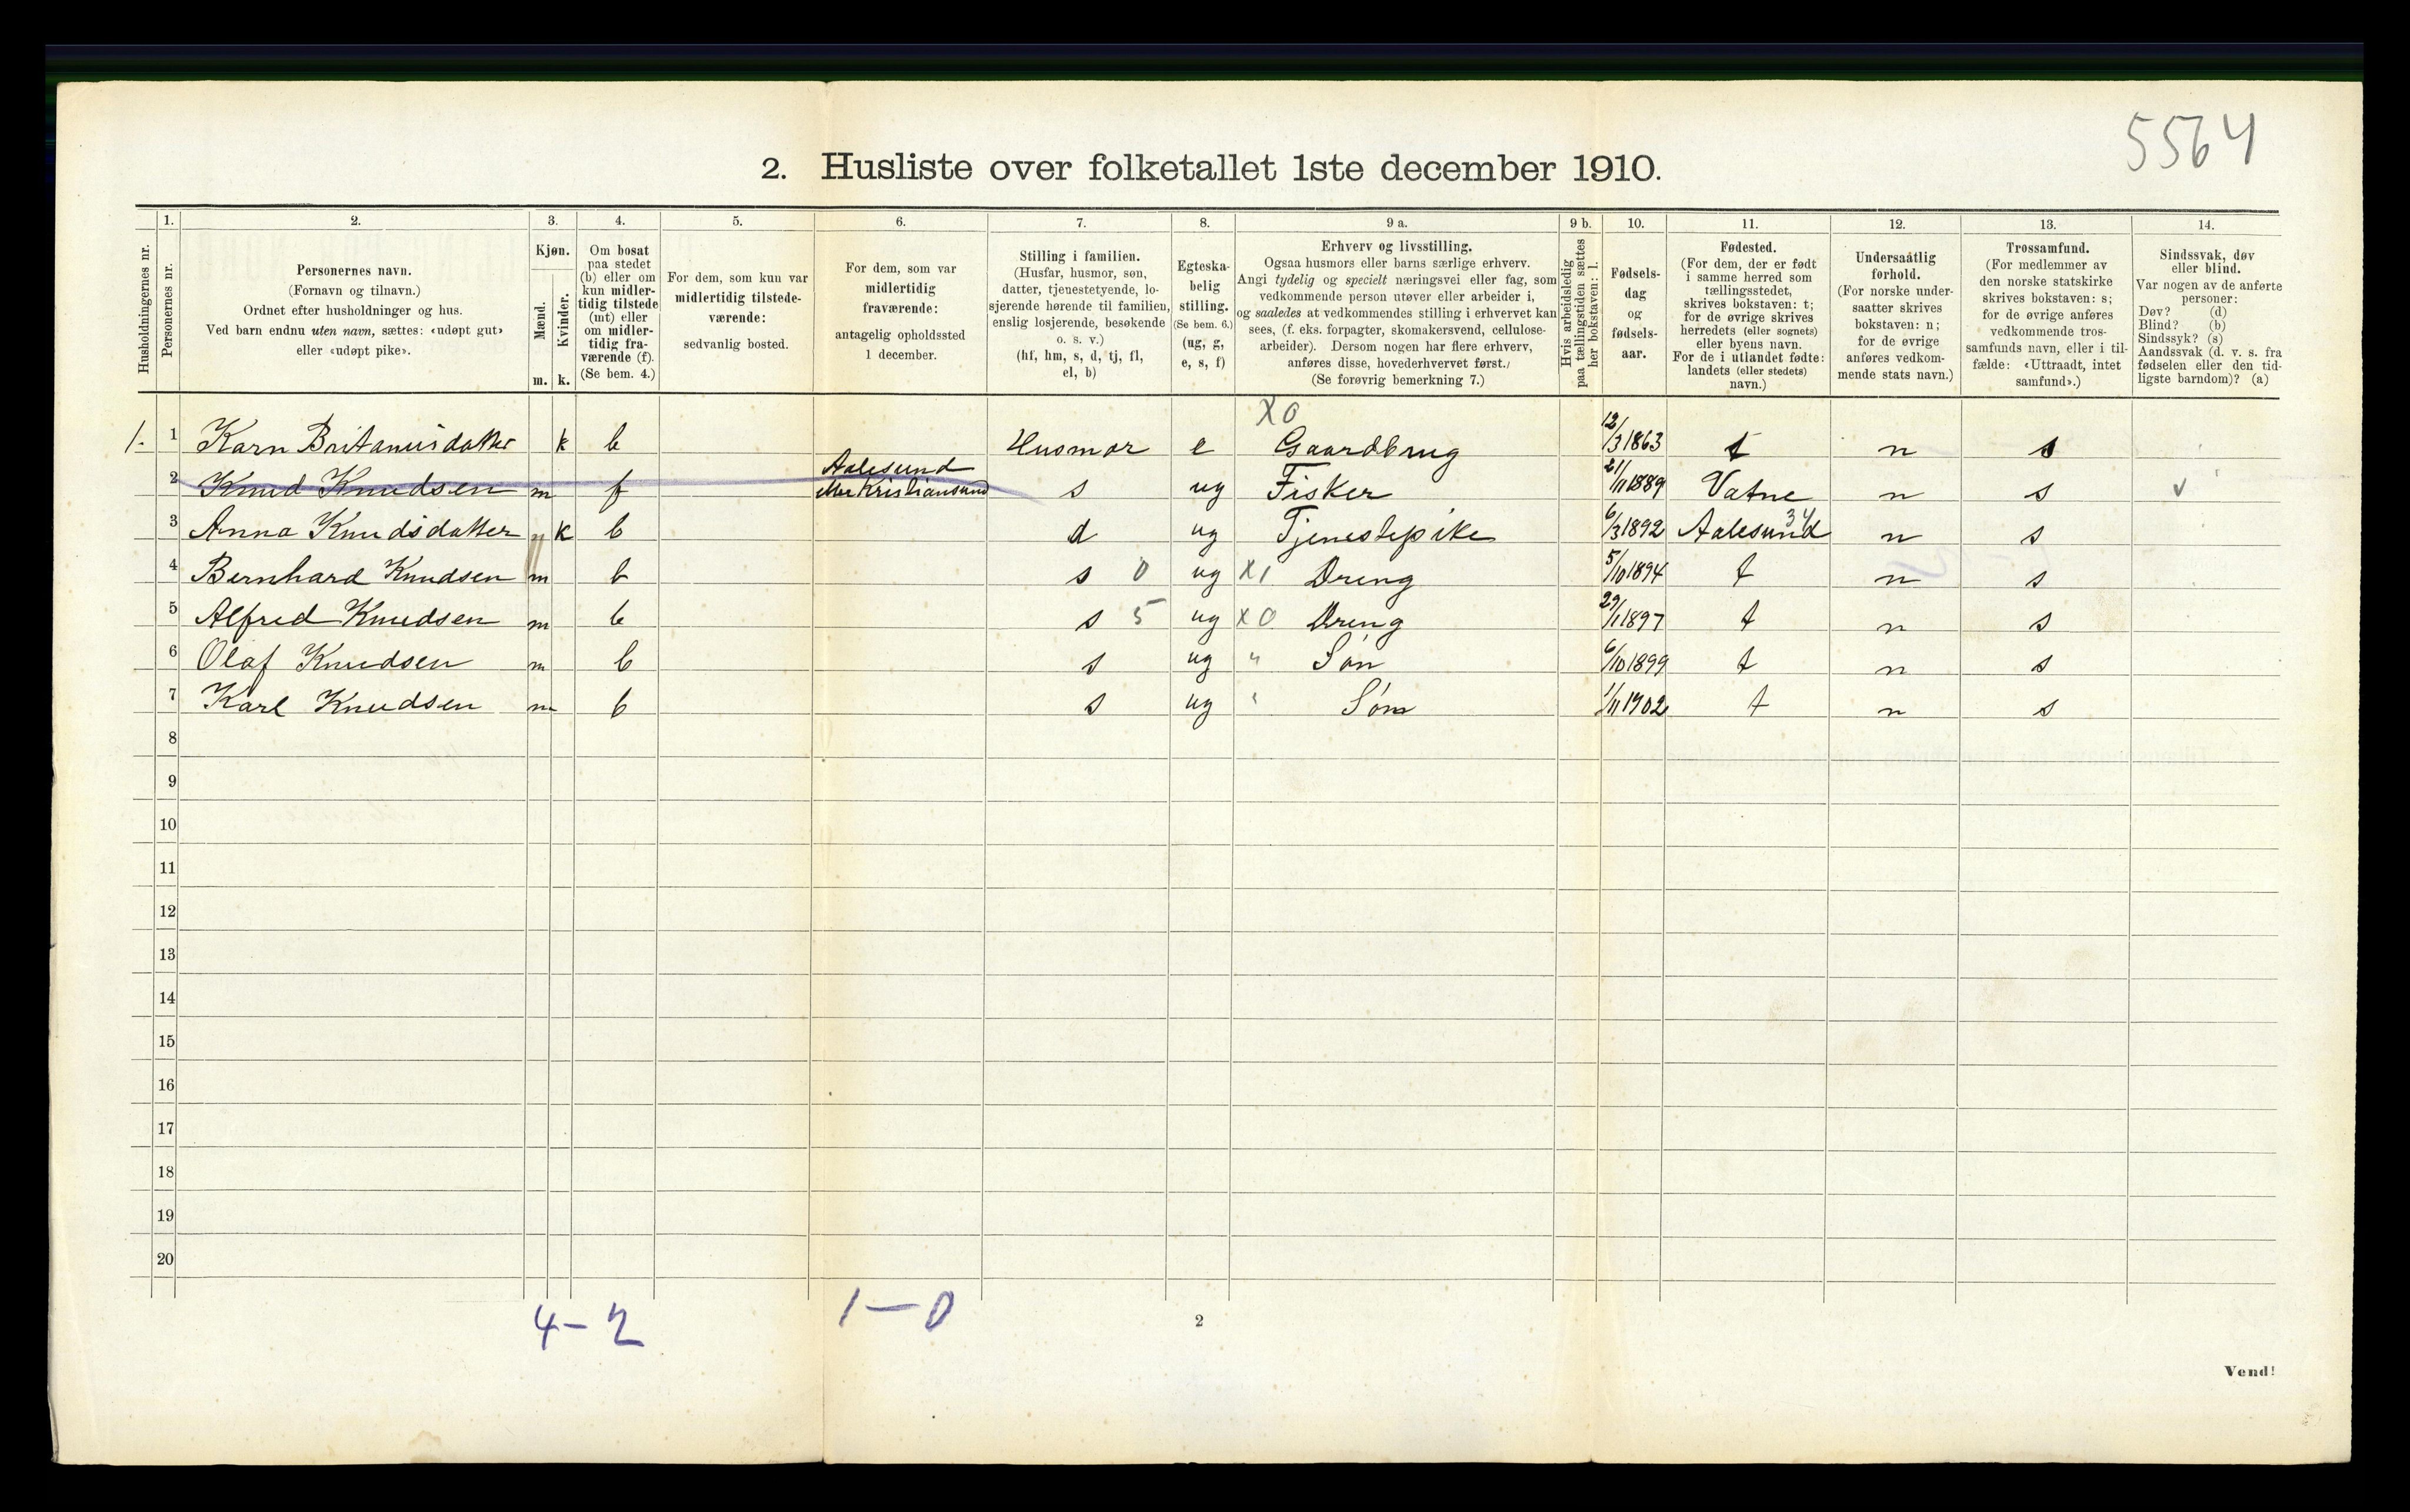 5564
2. Husliste over folketallet 1ste december 1910.
Husholdningernes nr.
1.
Personernes nr.
2.
Personernes navn.
(Fornavn og tilnavn.)
Ordnet efter husholdninger og hus.
Ved barn endnu uten navn, sættes: «udøpt gut»
eller «udøpt pike».
3.
Kjøn.
Mænd.
Kvinder.
m. k.
4.
Om bosat
paa stedet
(b) eller om
kun midler-
tidig tilstede
(mt) eller
om midler-
tidig fra-
værende (f).
(Se bem. 4.)
5.
For dem, som kun var
midlertidig tilstede-
værende:
sedvanlig bosted.
6.
For dem, som var
midlertidig
fraværende:
antagelig opholdssted
1 december.
7.
Stilling i familien.
(Husfar, husmor, søn,
datter, tjenestetyende, lo-
sjerende hørende til familien,
enslig losjerende, besøkende
o. s. v.)
(hf, hm, s, d, tj, fl,
el, b)
8.
Egteska-
belig
stilling.
(Se bem. 6.)
(ug, g,
e, s, f)
9 a.
Erhverv og livsstilling.
Ogsaa husmors eller barns særlige erhverv.
Angi tydelig og specielt næringsvei eller fag, som
vedkommende person utøver eller arbeider i,
og saaledes at vedkommendes stilling i erhvervet kan
sees, (f. eks. forpagter, skomakersvend, cellulose-
arbeider). Dersom nogen har flere erhverv,
anføres disse, hovederhvervet først.
(Se forøvrig bemerkning 7.)
9 b.
Hvis arbeidsledig
paa tællingstiden sættes
her bokstaven: l.
10.
Fødsels-
dag
og
fødsels-
aar.
11.
Fødested.
(For dem, der er født
i samme herred som
tællingsstedet,
skrives bokstaven: t;
for de øvrige skrives
herredets (eller sognets)
eller byens navn.
For de i utlandet fødte:
landets (eller stedets)
navn.)
12.
Undersaatlig
forhold.
(For norske under-
saatter skrives
bokstaven: n;
for de øvrige
anføres vedkom-
mende stats navn.)
13.
Trossamfund.
(For medlemmer av
den norske statskirke
skrives bokstaven: s;
for de øvrige anføres
vedkommende tros-
samfunds navn, eller i til-
fælde: «Uttraadt, intet
samfund».)
14.
Sindssvak, døv
eller blind.
Var nogen av de anførte
personer:
Døv? (d)
Blind? (b)
Sindssyk? (s)
Aandssvak (d. v. s. fra
fødselen eller den tid-
ligste barndom)? (a)
X0
1. 1 Karn Britanusdatter k b Husmor e Gaardbrug 12/3 1863 t n s
Aalesund
2 Knud Knudsen m f eller Kristiansund s ug Fisker 21/11 1889 Vatne n s v
3 Anna Knudsdatter k b d ug Tjenestepike 6/3 1892 Aalesund 34 n s
4 Bernhard Knudsen m b s 0 ug X1 Dreng 5/10 1894 t n s
5 Alfred Knudsen m b s 5 ug X0 Dreng 29/1 1897 t n s
6 Olaf Knudsen m b s ug " Søn 6/10 1899 t n s
7 Karl Knudsen m b s ug " Søn 1/11 1902 t n s
8
9
10
11
12
13
14
15
16
17
18
19
20
4-2 1-0
2
Vend!